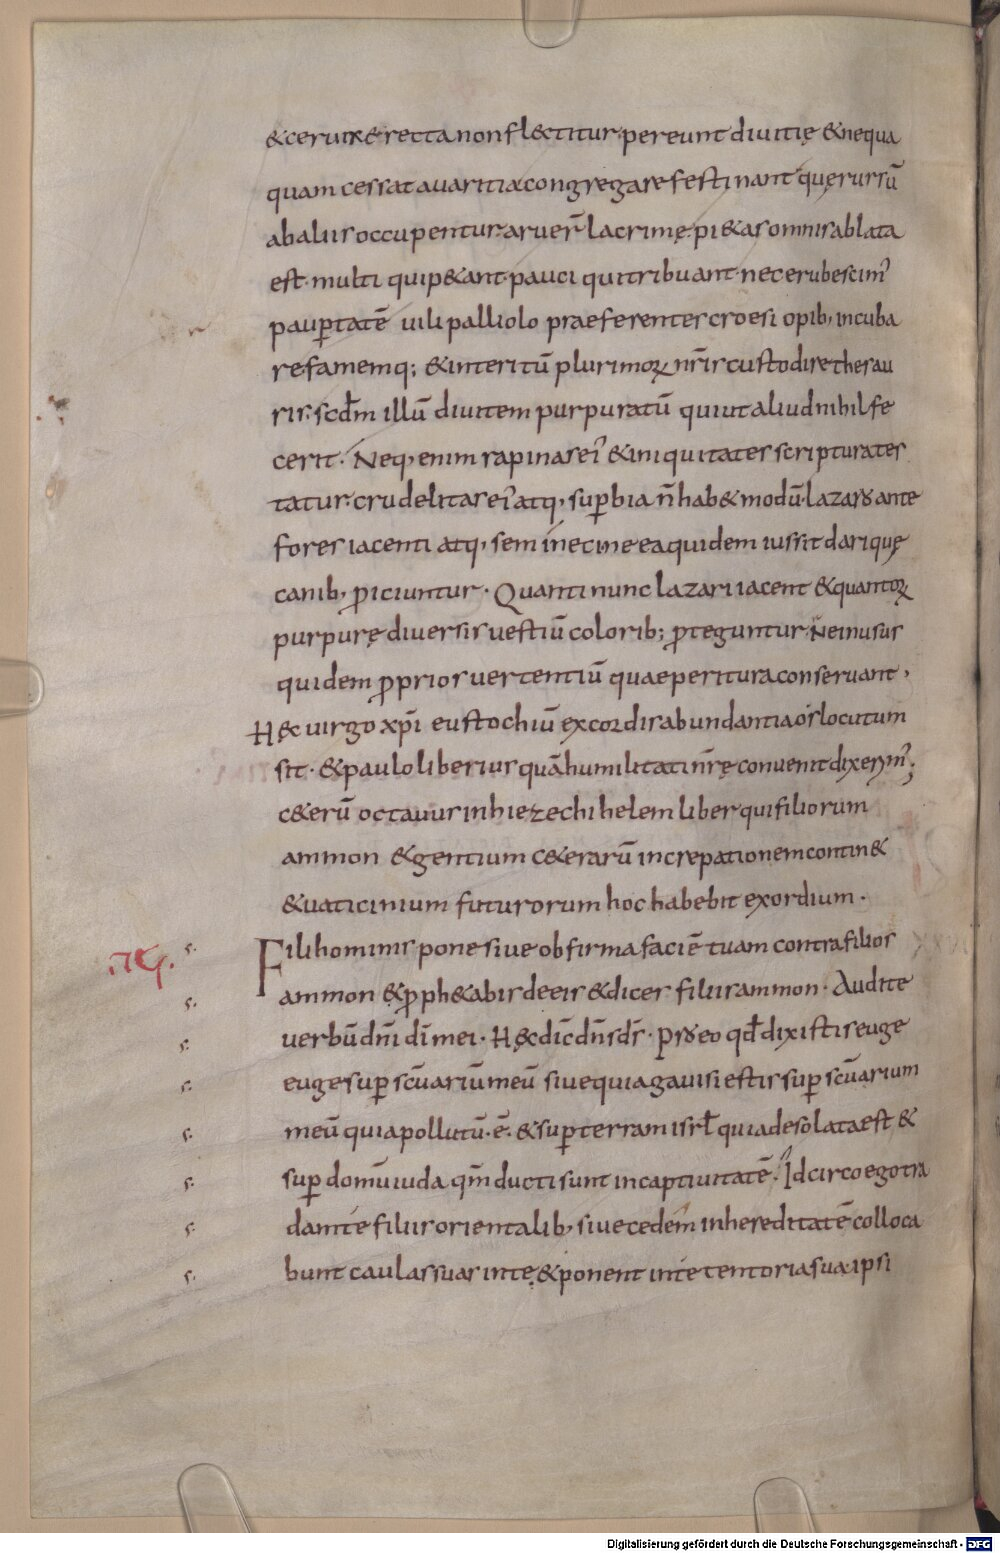 & ceruix erecta non fl&titur· pereunt diuitię & nequa
quam cessat auaritia congregare festinant quę rursū
ab aliis occupentur· aruer̄ lacrimę· pi&as omnis ablata
est· multi qui p&ant· pauci qui tribuant· nec erubescim᾽
paup̱tatē uili palliolo praeferentes croesi opib; incuba
re famemq; & interitū plurimoꝝ nr̄is custodire thesau
ris· scd̄m illū diuitem purpuratū qui ut aliud nihil fe
cerit· Neq; enim rapinas ei᾽ & iniquitates scriptura tes
tatur· crudelitas ei᾽ atq; sup̱bia n̄ hab& modū· lazaro ante
fores iacenti atq; semineci ne ea quidem iussit dari quę
canib; ꝓiciuntur· Quanti nunc lazari iacent & quantoꝝ
purpurę diuersis uestiū colorib; ꝓteguntur· Ne in usus
quidem ꝓprios uertentiū quae peritura conseruant·
Hęc uirgo xp̄i eustochiū ex cordis abundantia os locutum
sit· & paulo liberius quā humilitati nr̄ę conuenit dixerim᾽;
c&erū octauus in hiezechihelem liber qui filiorum
ammon & gentium c&erarū increpationem contin&
& uaticinium futurorum hoc habebit exordium·
Fili hominis pone siue obfirma faciē tuam contra filios
ammon & ꝓph&abis de eis & dices filiis ammon· Audite
uerbū dn̄i dī mei· Hęc dic̄ dn̄s ds̄· Pro eo qd̄ dixistis euge
euge sup̱ scūariū meū siue quia gauisi estis sup̱ scūarium
meū quia pollutū·ē· & sup̱ terram isrl̄ quia desolata est &
sup̱ domū iuda qm̄ ducti sunt in captiuitatē· Idcirco ego tra
dam te filiis orientalib; siue cedem in hereditatē colloca
bunt caulas suas in te & ponent in te tentoria sua· ipsi
Digitalisierung gefördert durch die Deutsche Forschungsgemeinschaft - DFG